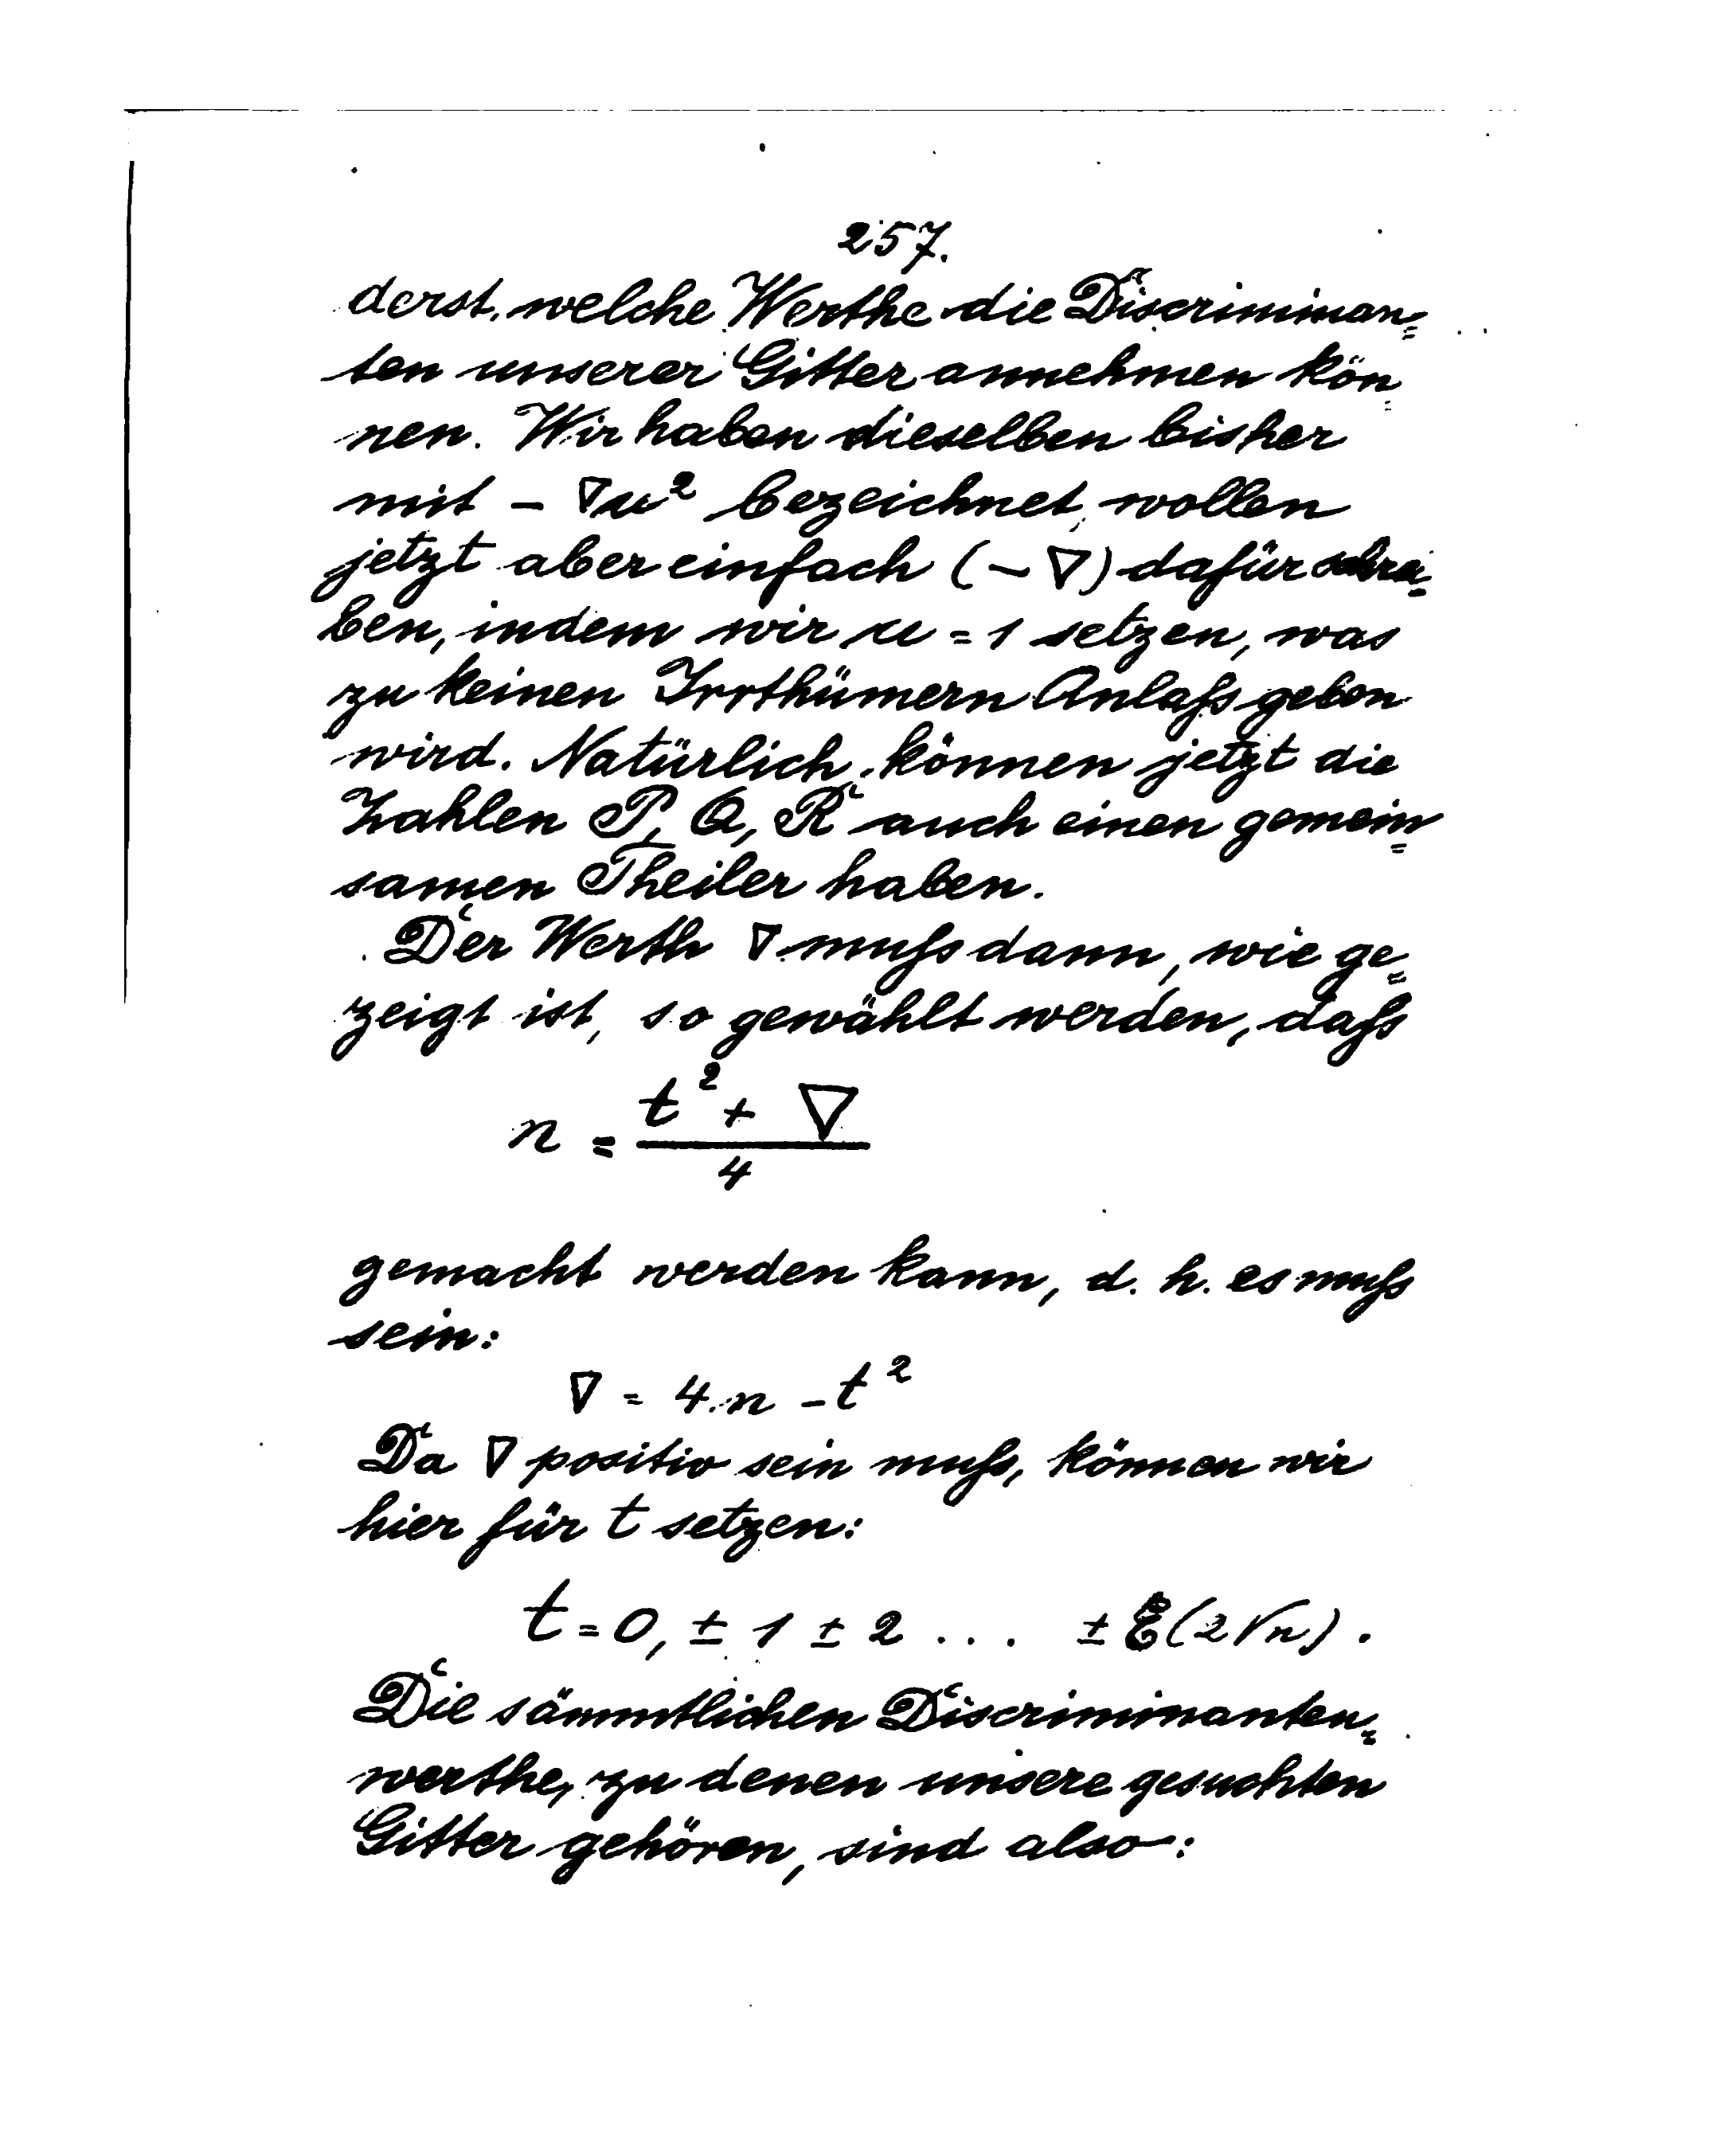 257.
derst, welche Werthe die Discriminan=
ten unserer Gitter annehmen kön=
nen. Wir haben dieselben bisher
mit - ∇u² bezeichnet, wollen
jetzt aber einfach (- ∇) dafür schrei=
ben, indem wir u = 1 setzen, was
zu keinen Irrthümern Anlaß geben
wird. Natürlich können jetzt die
Zahlen P, Q, R auch einen gemein=
samen Theiler haben.
Der Werth ∇ muß dann, wie ge=
zeigt ist, so gewählt werden, daß
n = (t² + ∇)/4
gemacht werden kann, d. h. es muß
sein:
∇ = 4.n - t²
Da ∇ positiv sein muß, können wir
hier für t setzen:
t = 0, ± 1 ± 2 ... ± E(2√n).
Die sämmtlichen Discriminanten=
werthe, zu denen unsere gesuchten
Gitter gehören, sind also: